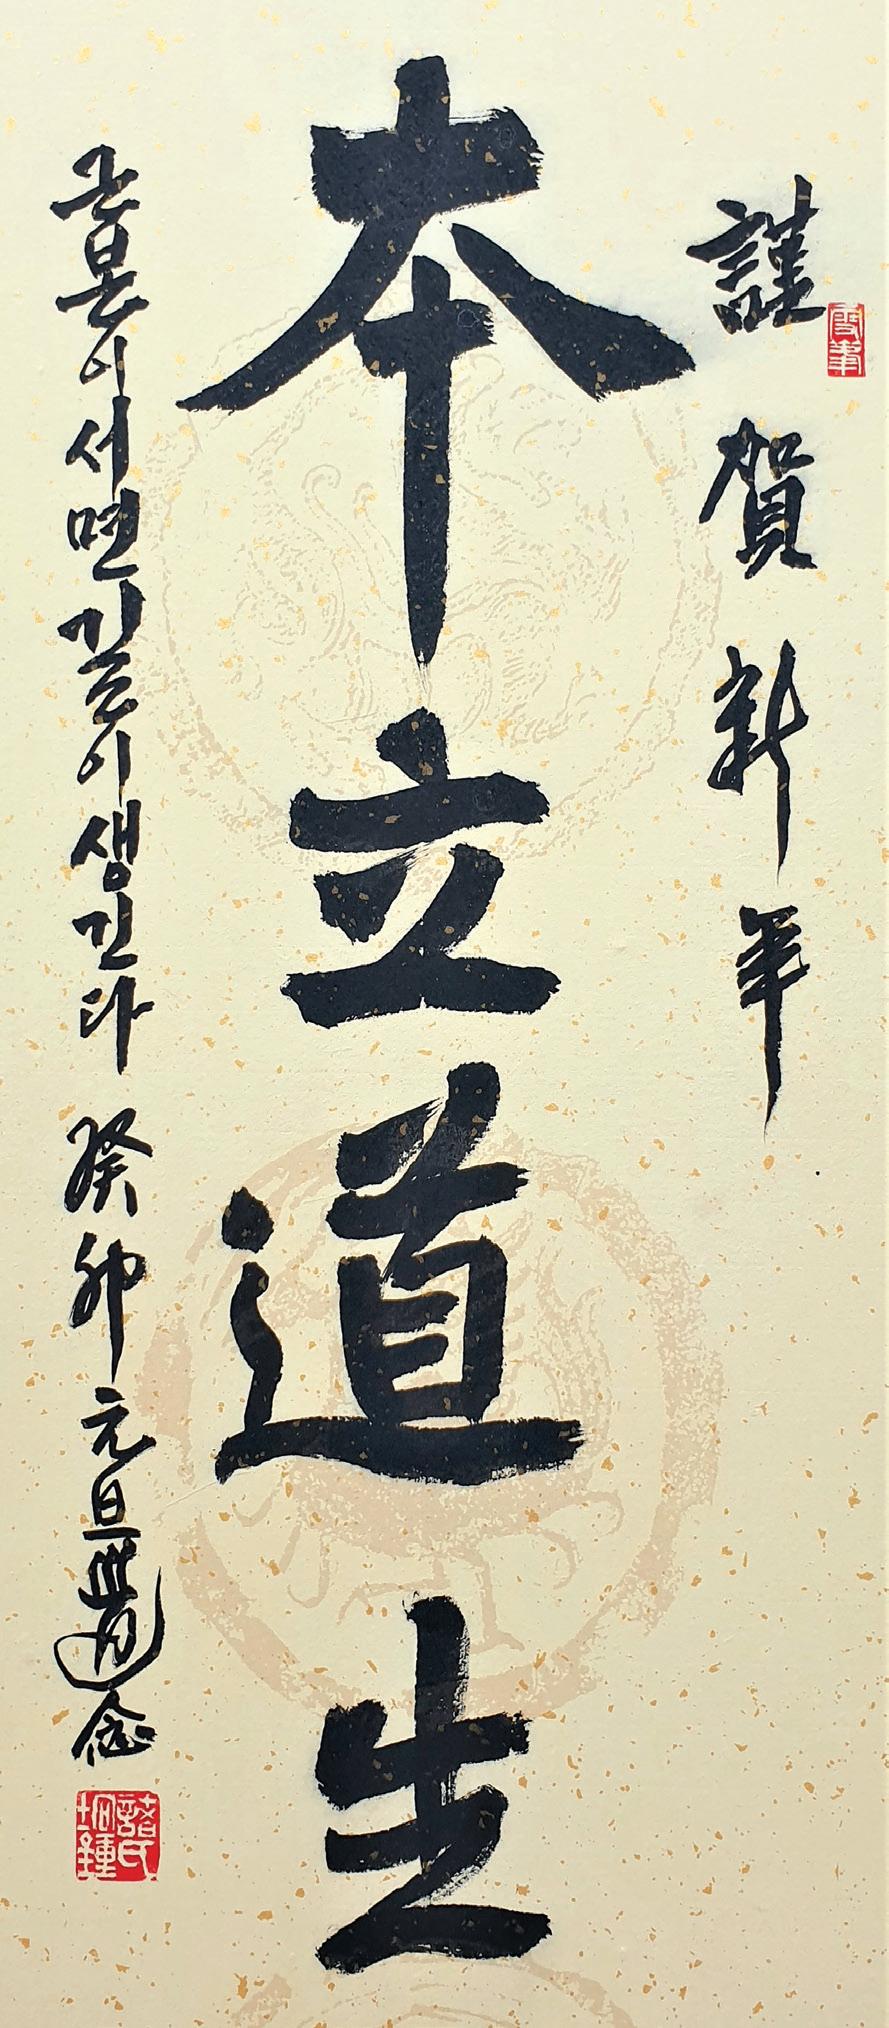 謹賀新年
本立道生
근본이서면길이생긴다 癸卯元旦